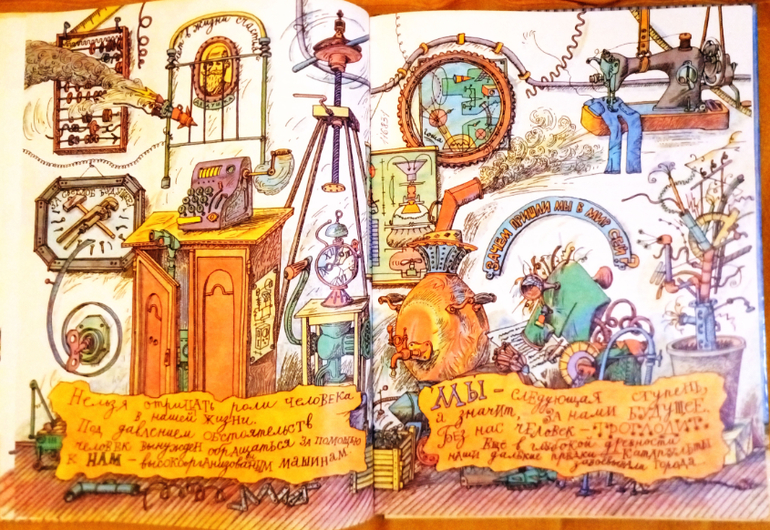 в жизни счастья
Нельзя отрицать роли человека
в нашей жизни.
Под давлением обстоятельств
человек вынужден обращаться за помощью
к НАМ – высокоорганизованым машинам
ЗАЧЕМ ПРИШЛИ МЫ В МИР СЕЙ?
МЫ – следующая ступень,
а значит, за нами БУДУЩЕЕ.
Без нас человек – ТРОГЛОДИТ.
Еще в глубокой древности
наши далекие предки – Катапульты
завоевали города